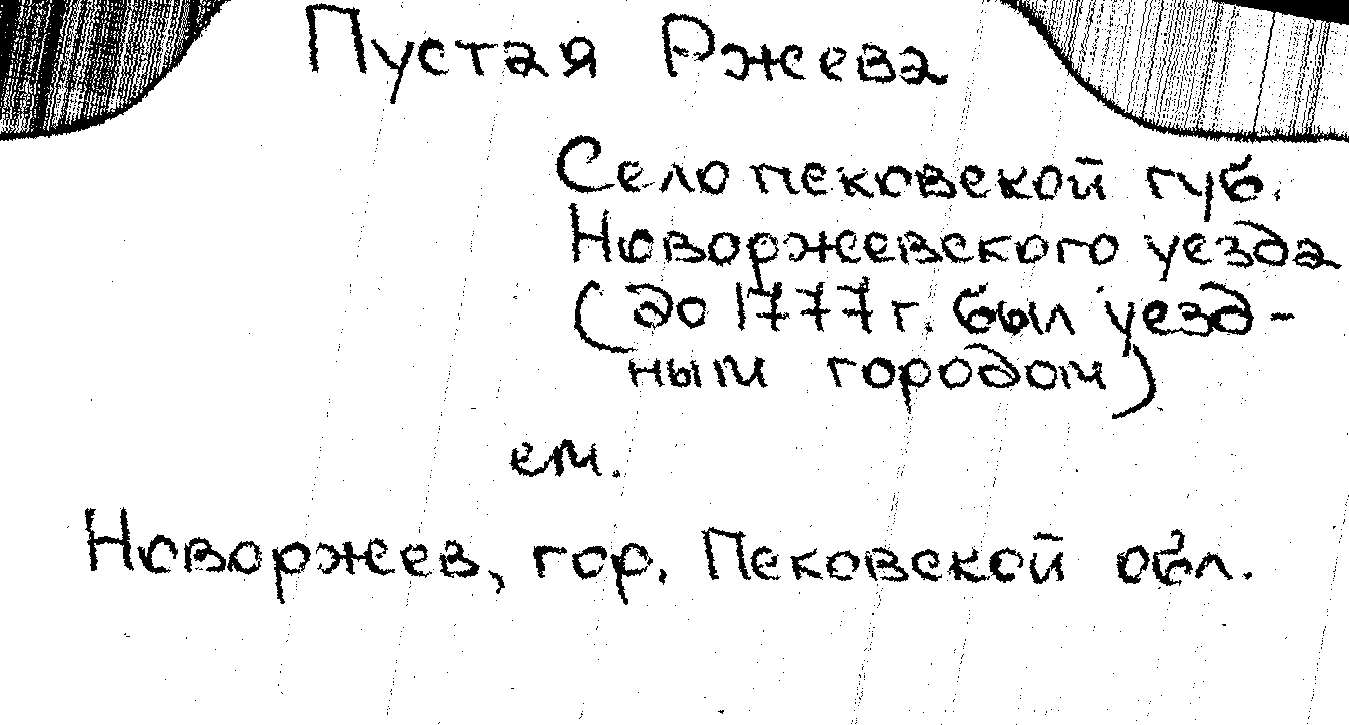 Пустая Ржева
Село псковской губ.
Новоржевского уезда
(до 1777 г. был уезд-
ным городом)
см.
Новоржев, гор. Псковской обл.